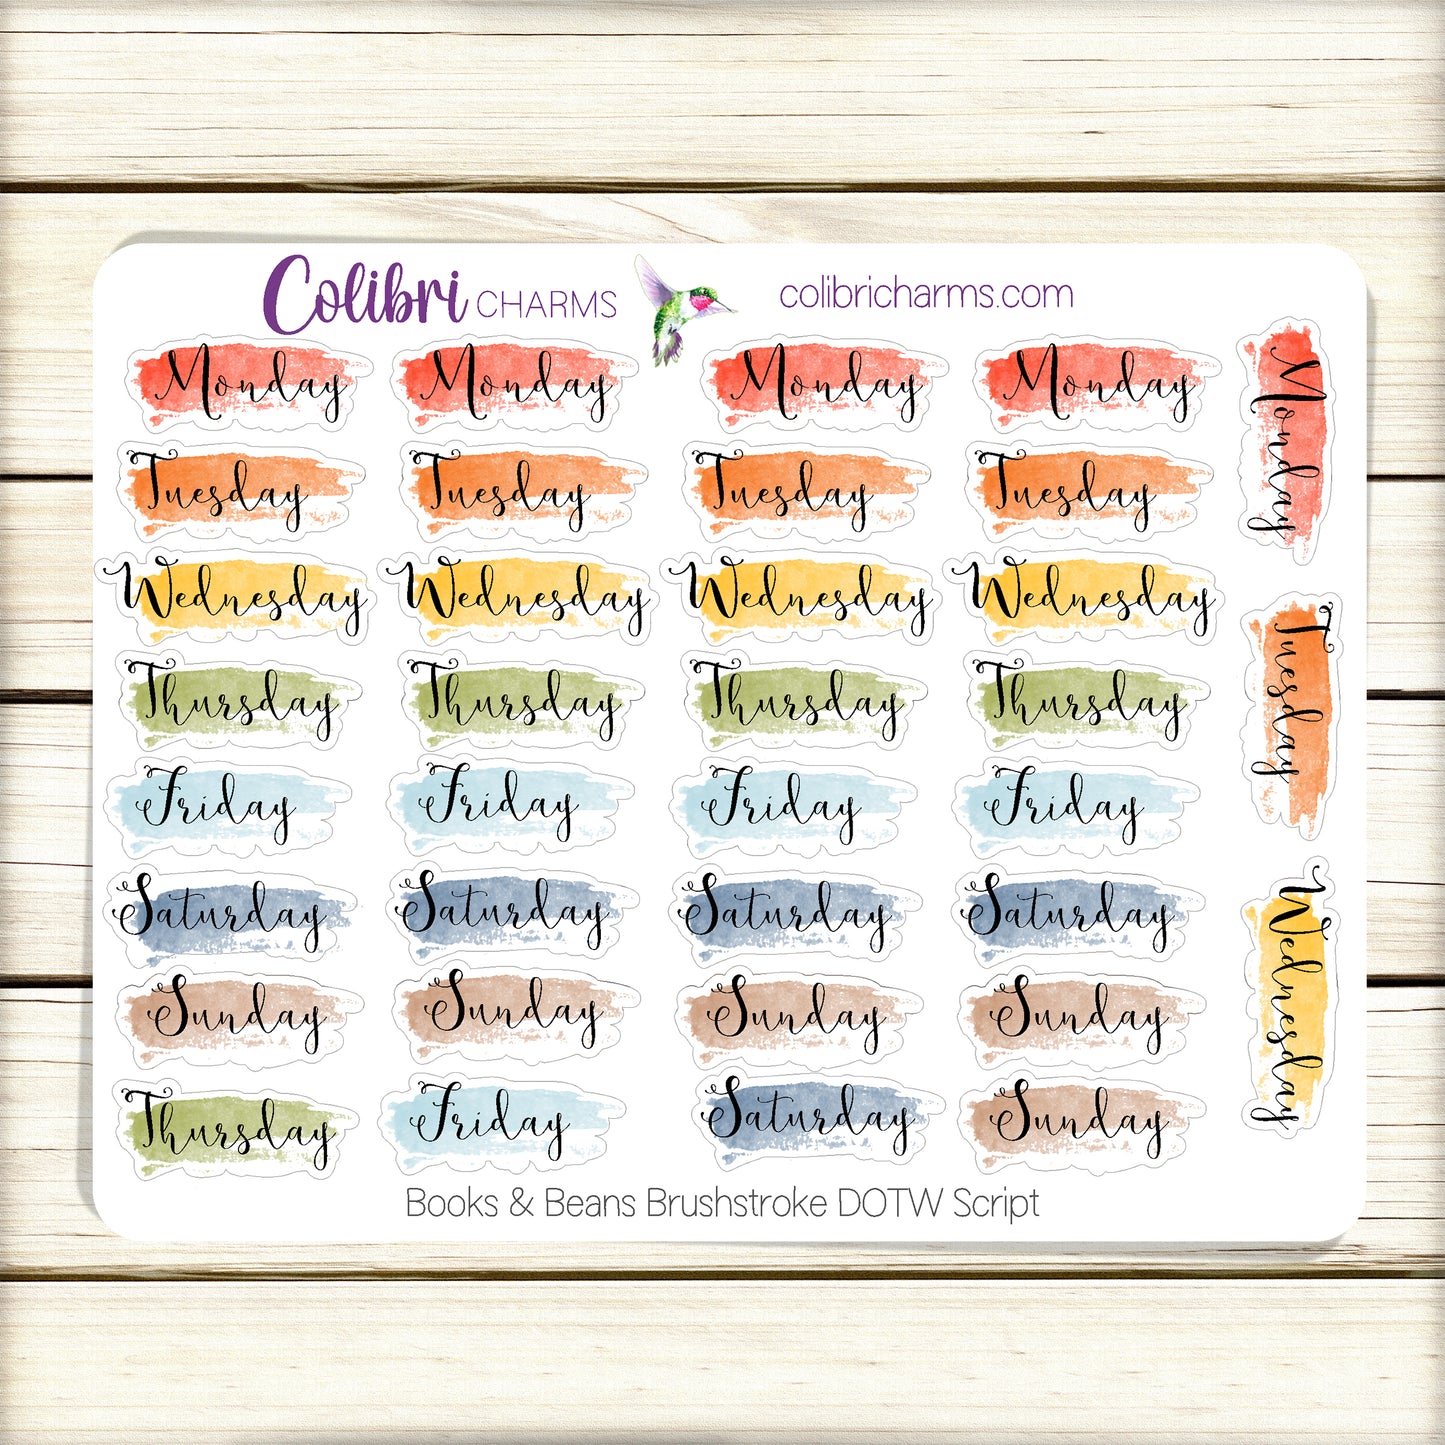 Colibri CHARMS colibricharms.com
Monday Monday Monday Monday
Tuesday Tuesday Tuesday Tuesday
Wednesday Wednesday Wednesday Wednesday
Thursday Thursday Thursday Thursday
Friday Friday Friday Friday
Saturday Saturday Saturday Saturday
Sunday Sunday Sunday Sunday
Thursday Friday Saturday Sunday
Monday
Tuesday
Wednesday
Books & Beans Brushstroke DOTW Script